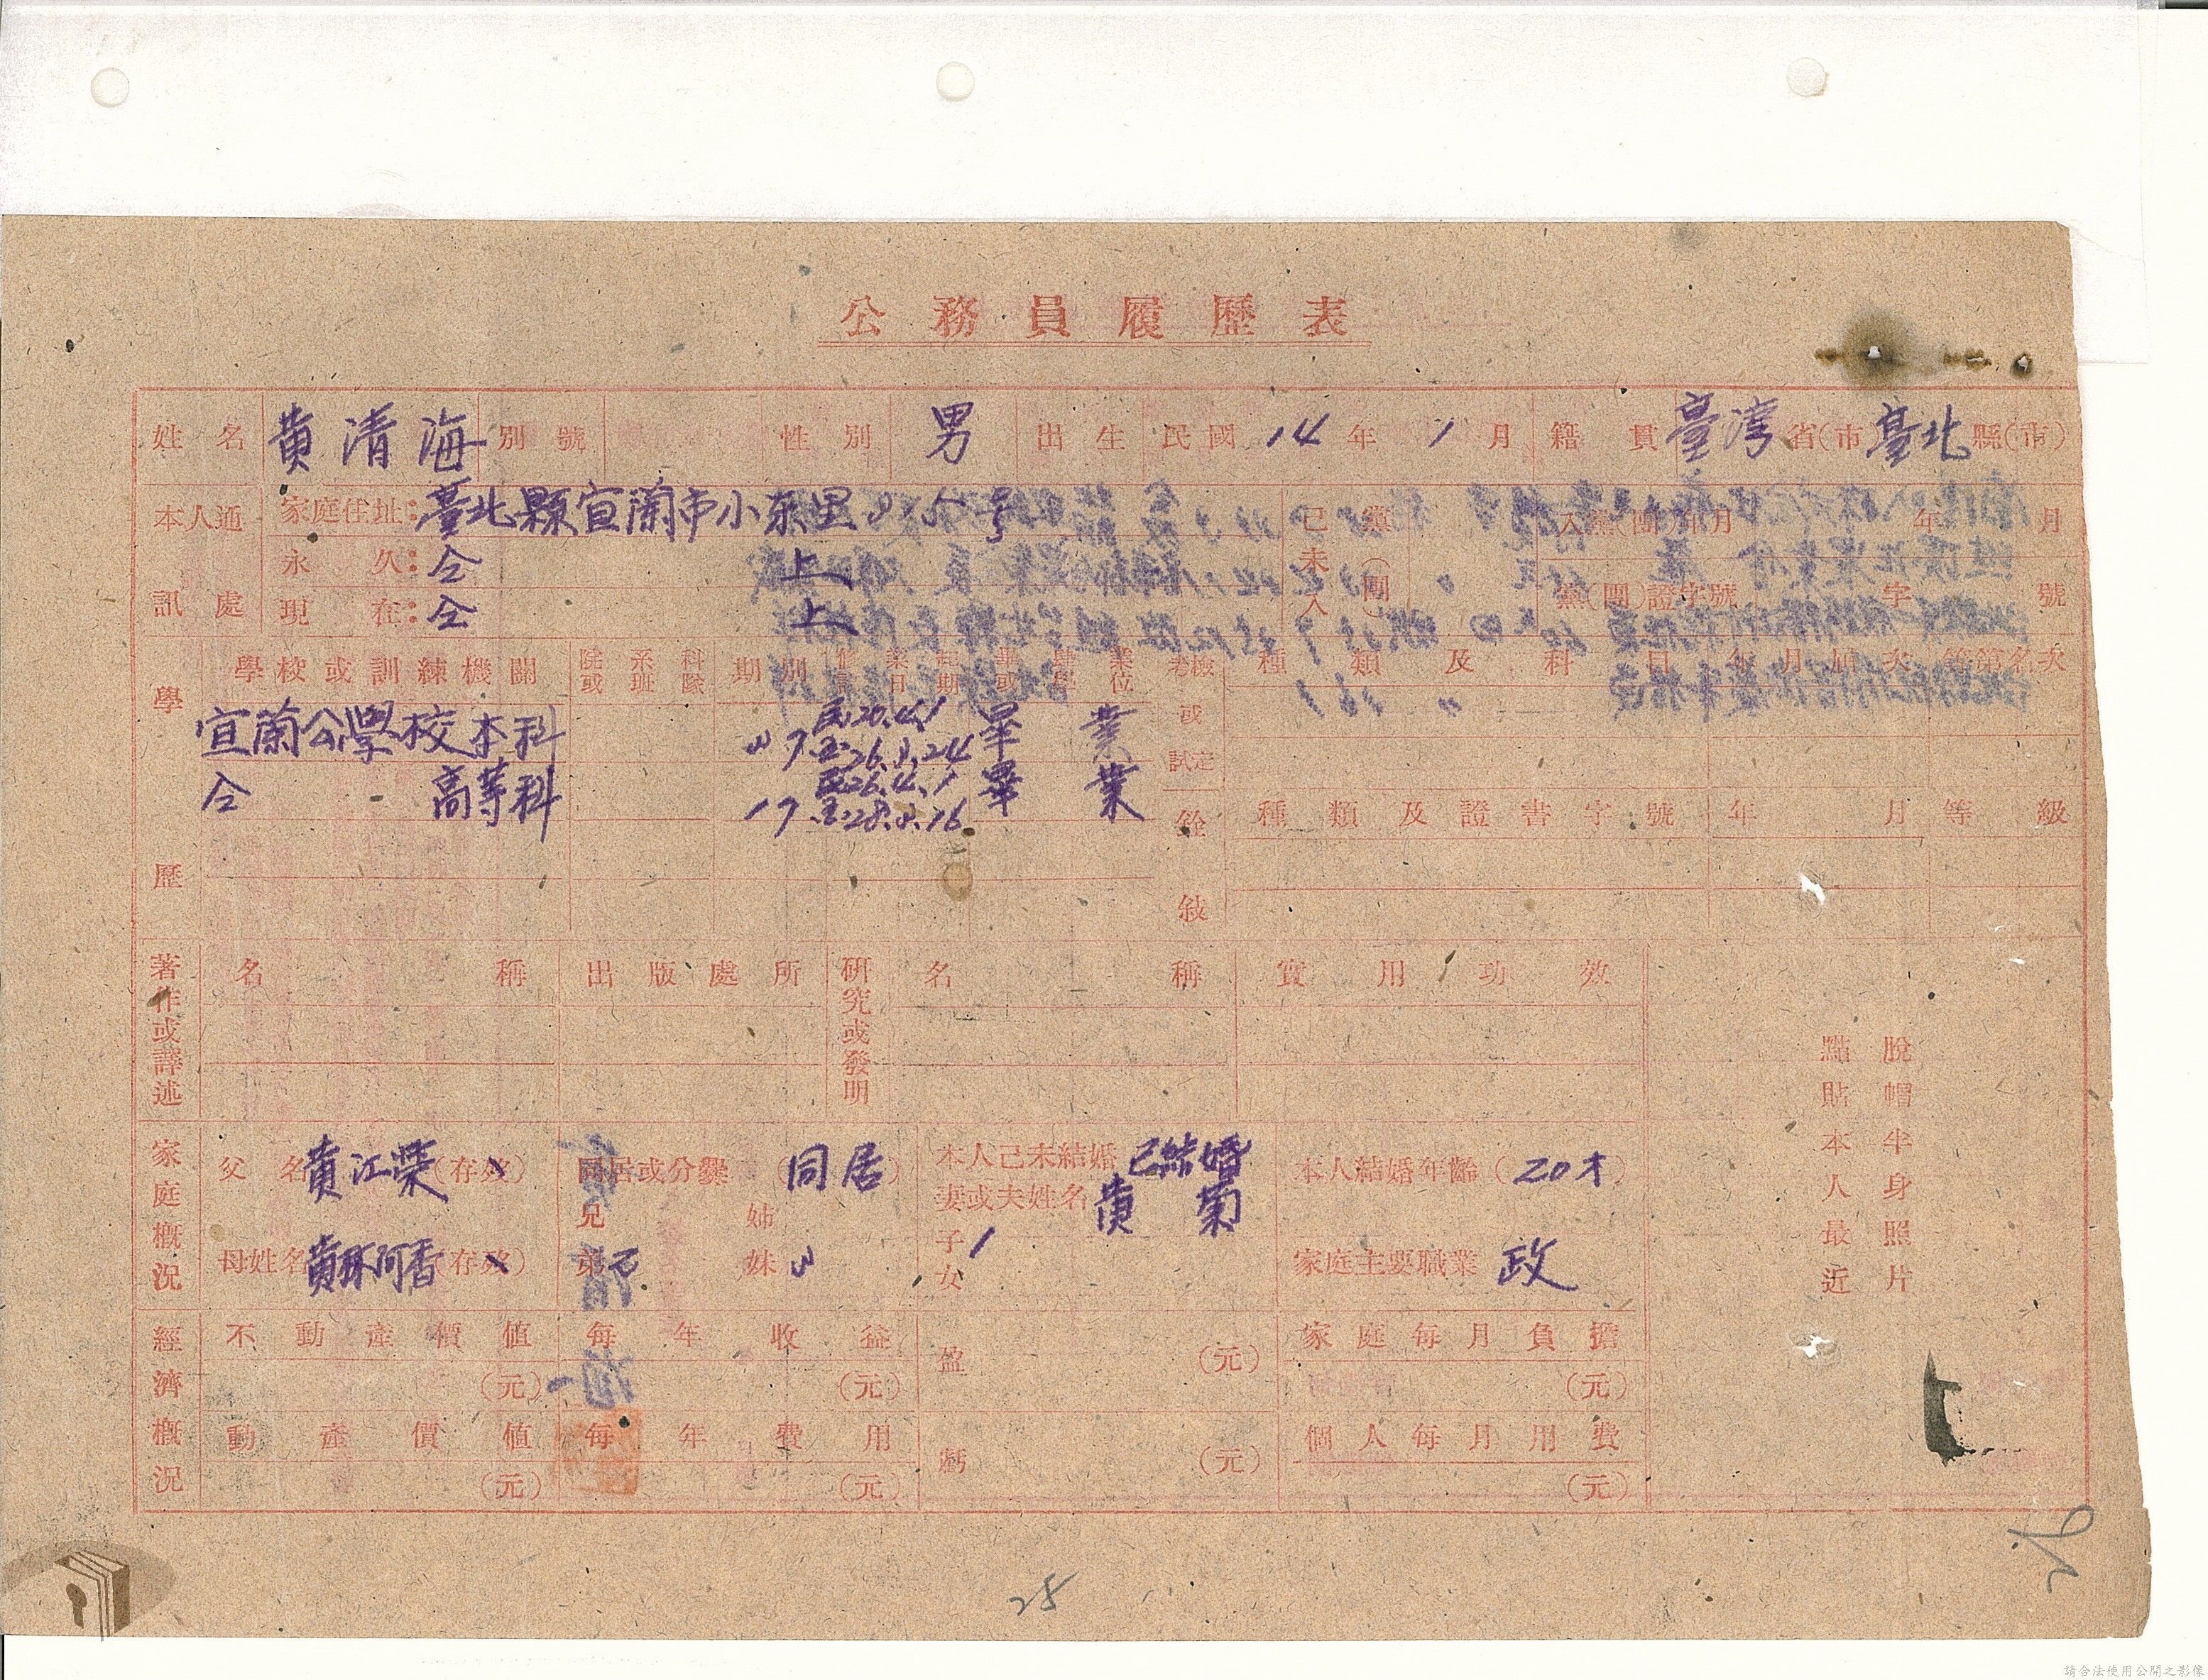 公務員履歷表
姓名 黄清海 別號 性別 男 出生 民國14年1月 籍貫 臺灣省(市)臺北縣(市)
本人通訊處 家庭住址：臺北縣宜蘭市小东里 号
永久：仝 上
現在：仝 上
已未入黨(團) 入黨(團)年月 年 月
黨(團)證字號 字 號
學歷 學校或訓練機關 院或 系班 科隊 期別 修業起訖日期 畢或肄業學位
宜蘭公學校本科 民20.4.1 至26.3.24 畢業
仝 高等科 民26.4.1 至28.3.16 畢業
考試或檢定 種類及科目 年月屆次 等第名次
銓敍 種類及證書字號 年月 等級
著作或譯述 名稱 出版處所
研究或發明 名稱 實用功效
黏貼本人最近脫帽半身照片
家庭概況 父名 黄江榮 (存歿) 同居或分爨 (同居) 本人已未結婚 已結婚 本人結婚年齡(20才)
兄 姉 妻或夫姓名 黄菊
母姓名 阿香 (存歿) 弟 妹 子女 1 家庭主要職業 政
經濟概況 不動產價值 (元) 每年收益 (元) 盈 (元) 家庭每月負擔 (元)
動產價值 (元) 每年費用 (元) 虧 (元) 個人每月用費 (元)
28
26
請合法使用公開之影像